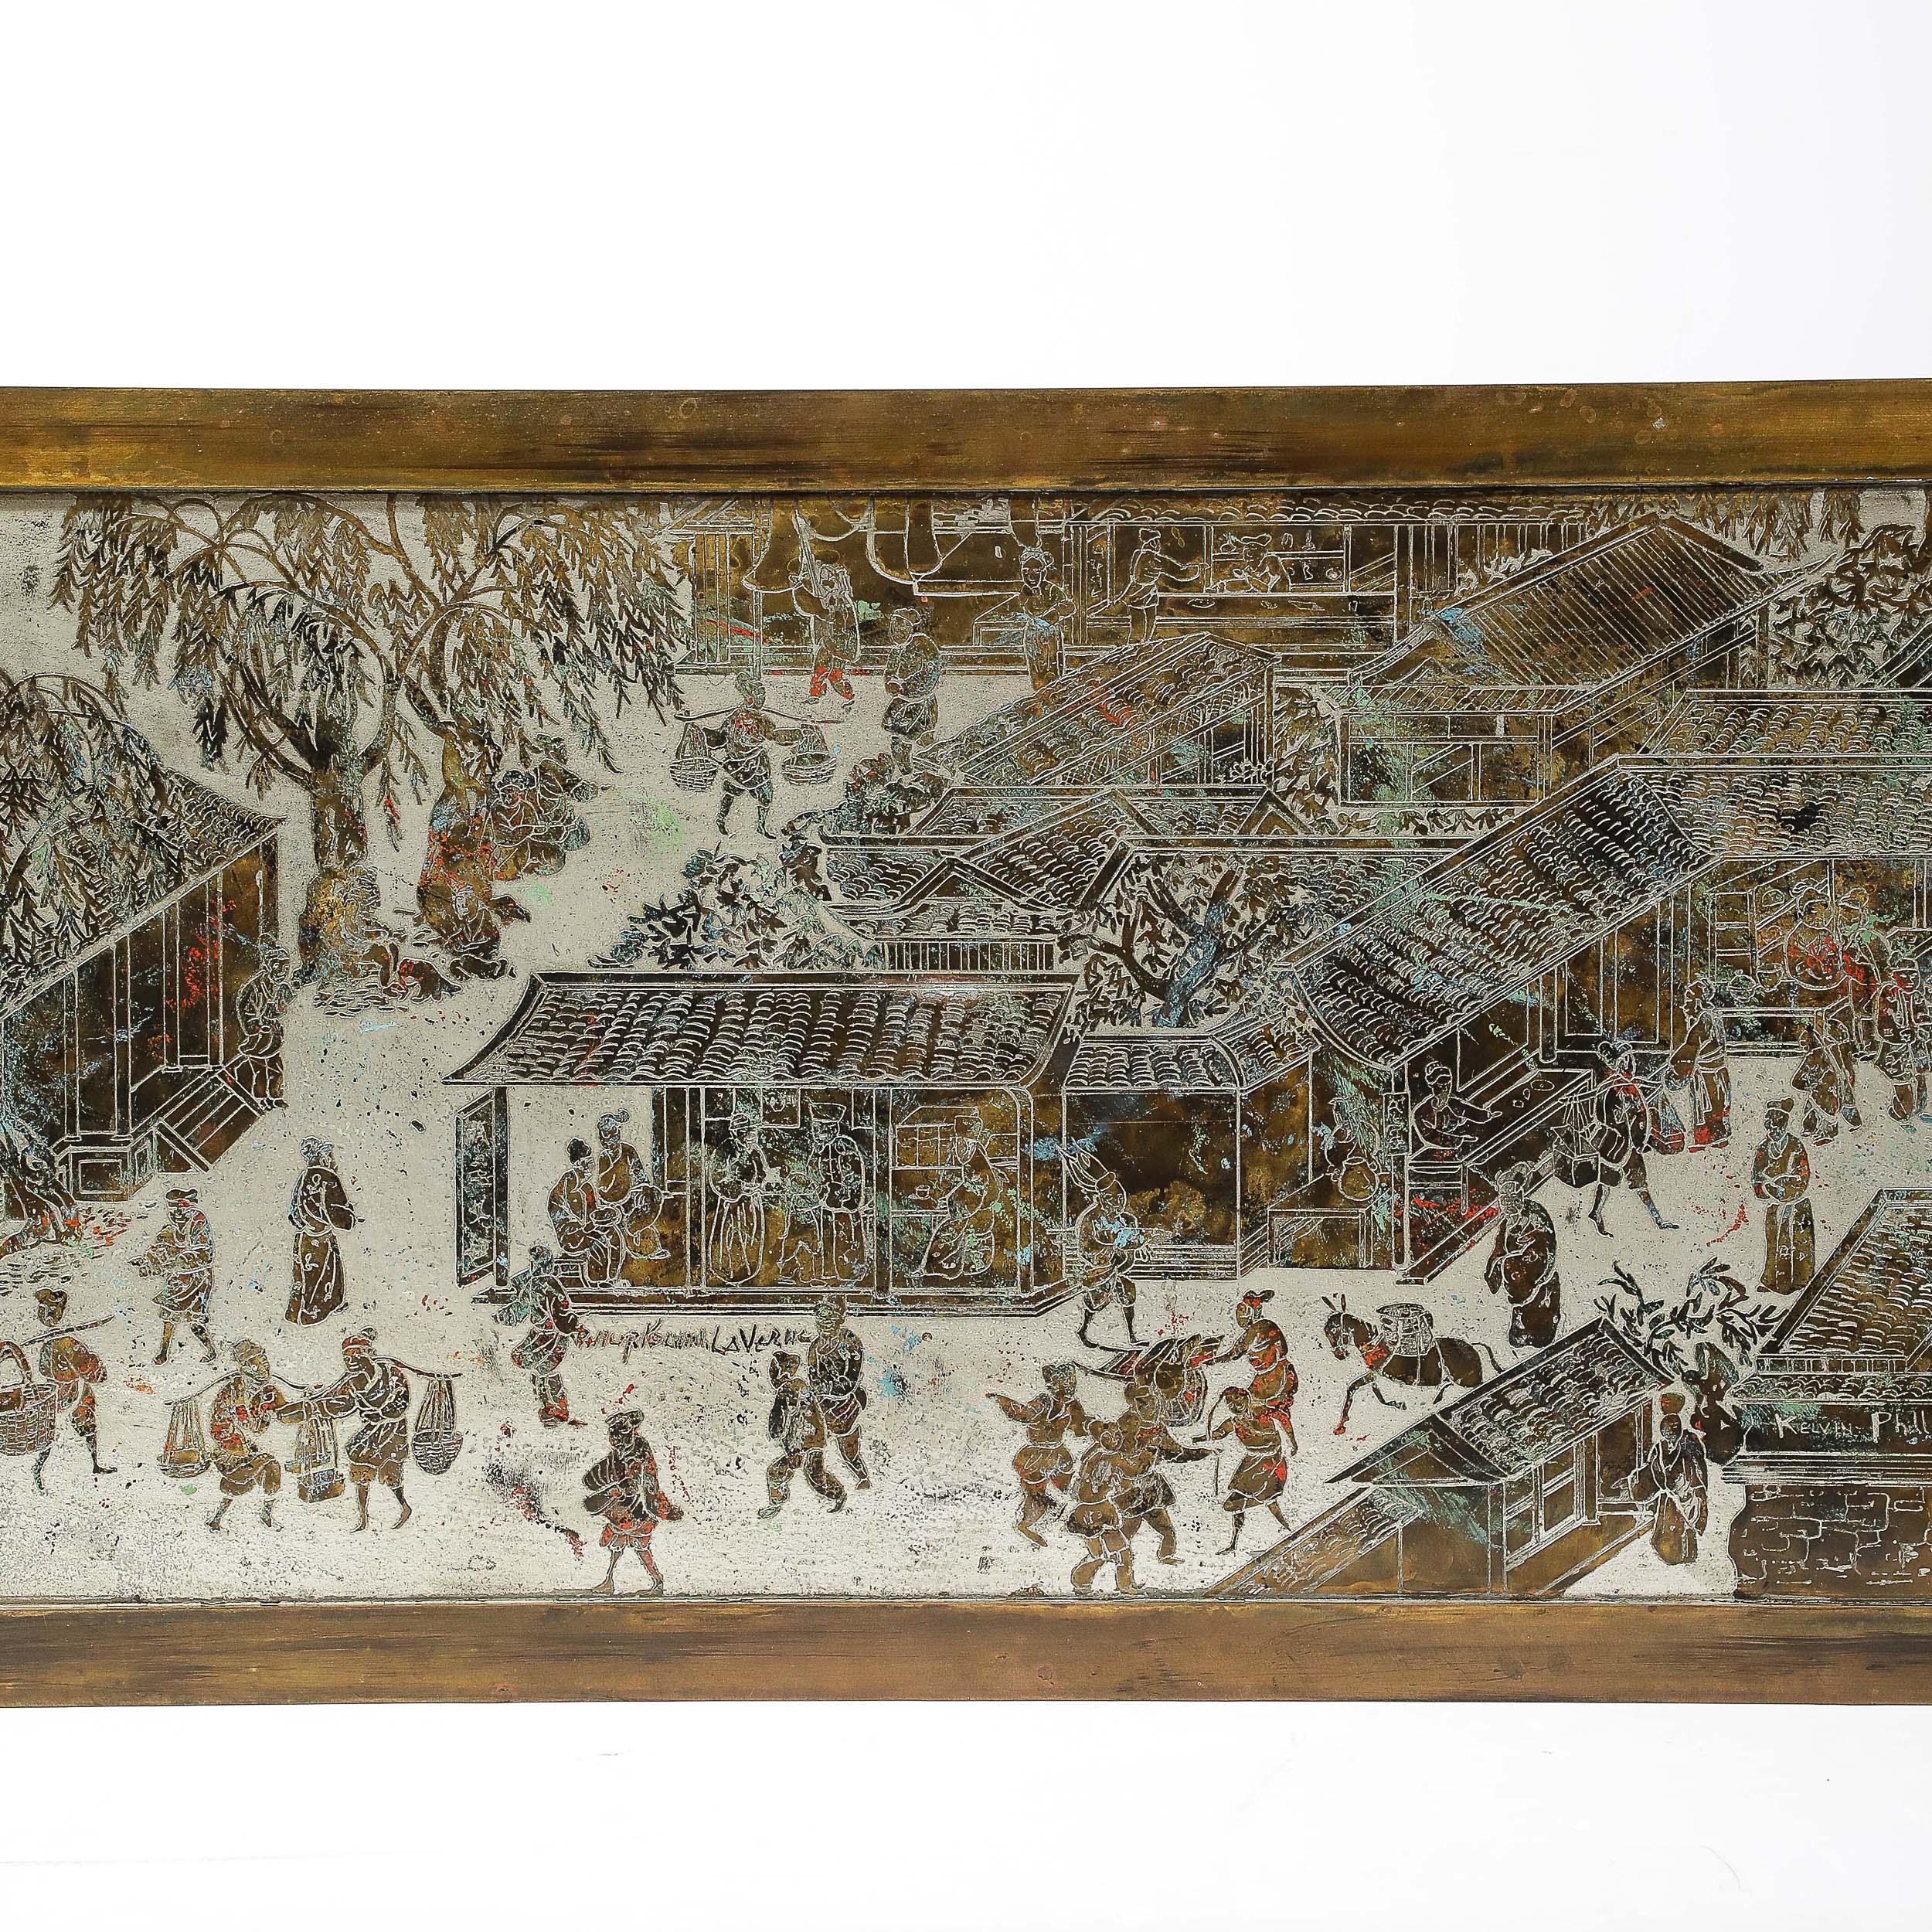 Philip Kelvin LaVerne
KELVIN Phil